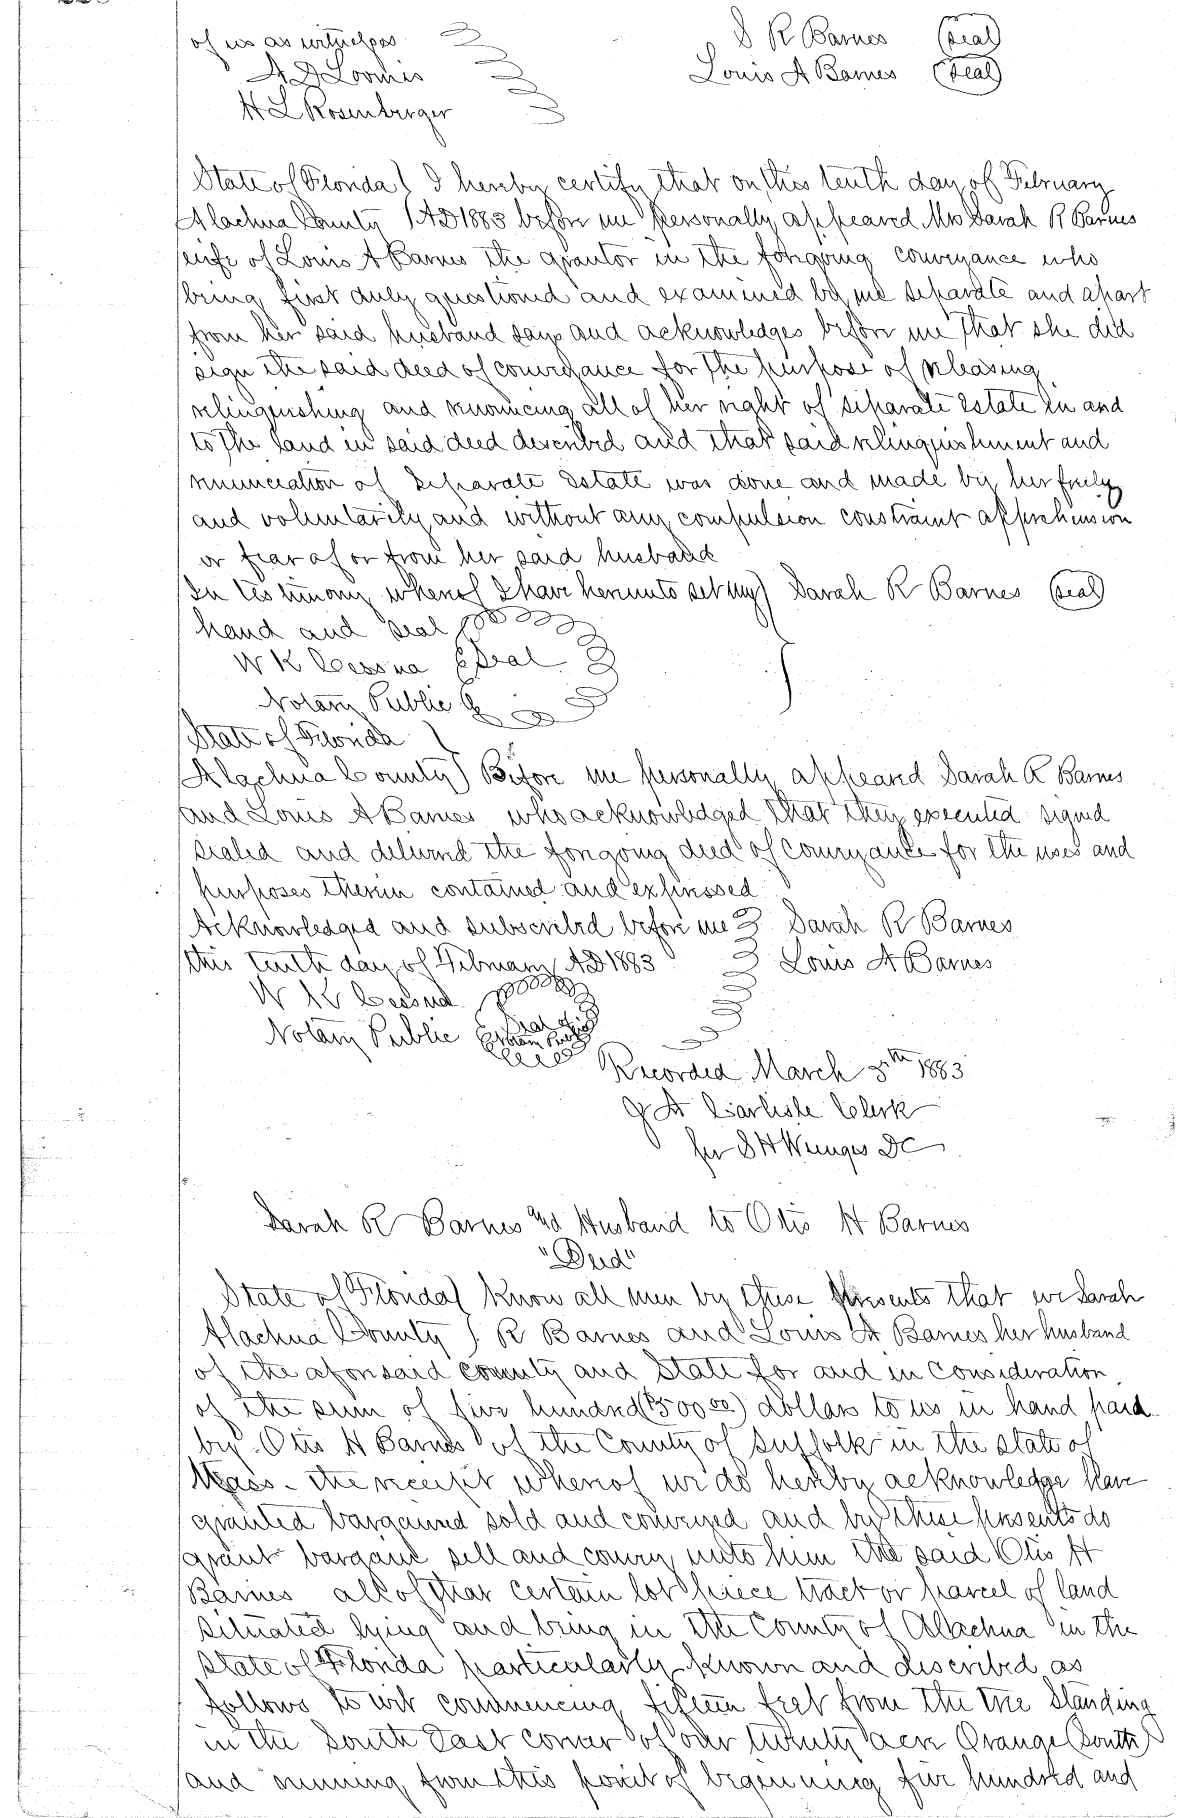 of us as witnesses S R Barnes (seal)
A D Loomis Louis A Barnes (seal)
H L Rosenberger
State of Florida } I hereby certify that on this tenth day of February
Alachua County } AD 1883 before me personally appeared Mrs Sarah R Barnes
wife of Louis A Barnes the grantor in the foregoing conveyance who
being first duly questioned and examined by me separate and apart
from her said husband says and acknowledges before me that she did
sign the said deed of conveyance for the purpose of releasing
relinquishing and renouncing all of her right of separate estate in and
to the land in said deed described and that said relinquishment and
renunciation of separate estate was done and made by her freely
and voluntarily and without any compulsion constraint apprehension
or fear of or from her said husband
In testimony whereof I have hereunto set my } Sarah R Barnes (seal)
hand and seal
W K Cessna Seal
Notary Public
State of Florida }
Alachua County } Before me personally appeared Sarah R Barnes
and Louis A Barnes who acknowledged that they executed signed
sealed and delivered the foregoing deed of conveyance for the uses and
purposes therein contained and expressed
Acknowledged and subscribed before me Sarah R Barnes
this tenth day of February AD 1883 Louis A Barnes
W K Cessna
Notary Public Seal of Notary Public
Recorded March 5th 1883
J A Carlisle Clerk
per S H Wienges DC
Sarah R Barnes and Husband to Otis H Barnes
"Deed"
State of Florida } Know all men by these presents that we Sarah
Alachua County } R Barnes and Louis A Barnes her husband
of the aforesaid county and State for and in consideration
of the sum of five hundred ($500.00) dollars to us in hand paid
by Otis H Barnes of the County of Suffolk in the state of
Mass - the receipt whereof we do hereby acknowledge have
granted bargained sold and conveyed and by these presents do
grant bargain sell and convey unto him the said Otis H
Barnes all of that certain lot piece tract or parcel of land
situated lying and being in the County of Alachua in the
State of Florida particularly known and described as
follows to wit commencing fifteen feet from the tree standing
in the South East corner of our twenty acre Orange (South)
and running from this point of beginning five hundred and